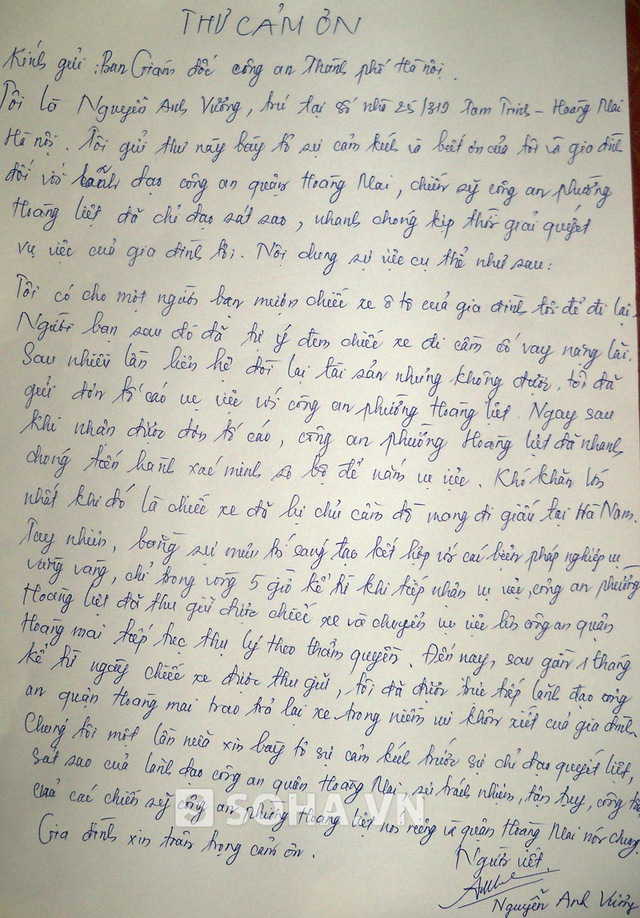 THƯ CẢM ƠN
Kính gửi : Ban Giám đốc công an Thành phố Hà Nội.
Tôi là Nguyễn Anh Vương, trú tại số nhà 25/319 Tam Trinh - Hoàng Mai
Hà Nội. Tôi gửi thư này bày tỏ sự cảm kích và biết ơn của tôi và gia đình
đối với lãnh đạo công an quận Hoàng Mai, chiến sỹ công an phường
Hoàng Liệt đã chỉ đạo sát sao, nhanh chóng kịp thời giải quyết
vụ việc của gia đình tôi. Nội dung sự việc cụ thể như sau:
Tôi có cho một người bạn mượn chiếc xe ô tô của gia đình tôi để đi lại.
Người bạn sau đó đã tự ý đem chiếc xe đi cầm cố vay nặng lãi.
Sau nhiều lần liên hệ đòi lại tài sản nhưng không được, tôi đã
gửi đơn tố cáo vụ việc với công an phường Hoàng Liệt. Ngay sau
khi nhận được đơn tố cáo, công an phường Hoàng Liệt đã nhanh
chóng tiến hành xác minh sơ bộ để nắm vụ việc. Khó khăn lớn
nhất khi đó là chiếc xe đã bị chủ cầm đồ mang đi giấu tại Hà Nam.
Tuy nhiên, bằng sự mưu trí sáng tạo kết hợp với các biện pháp nghiệp vụ
vững vàng, chỉ trong vòng 5 giờ kể từ khi tiếp nhận vụ việc, công an phường
Hoàng Liệt đã thu giữ được chiếc xe và chuyển vụ việc lên công an quận
Hoàng mai tiếp tục thụ lý theo thẩm quyền. Đến nay, sau gần 1 tháng
kể từ ngày chiếc xe được thu giữ, tôi đã được trực tiếp lãnh đạo công
an quận Hoàng mai trao trả lại xe trong niềm vui khôn xiết của gia đình.
Chúng tôi một lần nữa xin bày tỏ sự cảm kích trước sự chỉ đạo quyết liệt,
sát sao của lãnh đạo công an quận Hoàng Mai, sự trách nhiệm, tận tụy, công tâm
của các chiến sỹ công an phường Hoàng Liệt nói riêng và quận Hoàng Mai nói chung.
Gia đình xin trân trọng cảm ơn.
Người viết
Nguyễn Anh Vương
SOHA.VN